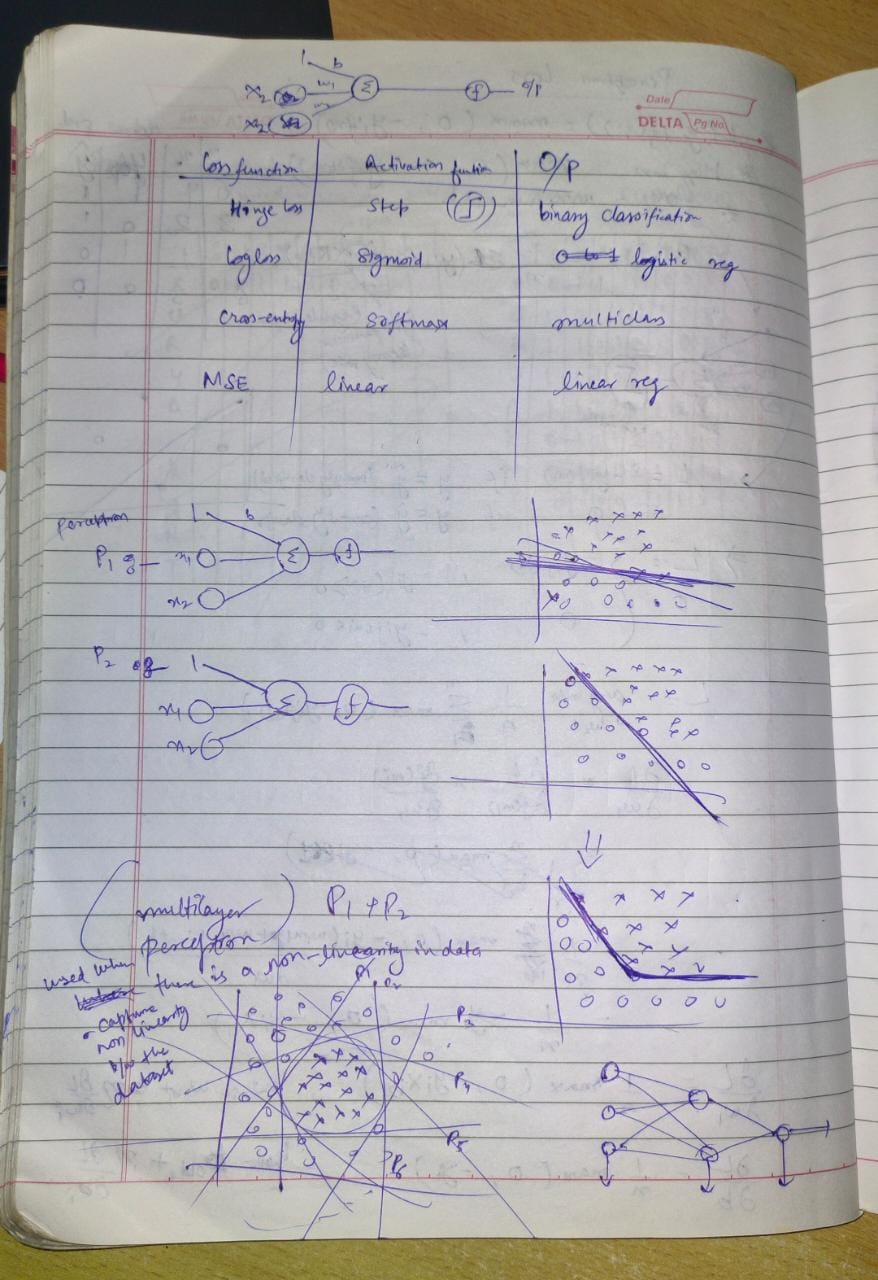 1 b
x2 w1 Σ f o/p
x2 w2
Date
DELTA Pg No
Loss function Activation function O/P
Hinge loss Step binary classification
Logloss Sigmoid 0 to 1 logistic reg
Cross-entropy Softmax multiclass
MSE linear linear reg
perceptron
1 b
P1 x1 Σ f
x2
P2 1
x1 Σ f
x2
multilayer P1 + P2
perceptron
used when there is a non-linearity in data
• capture
non linearity
b/w the
dataset
P1 P2
P3
P4
P5
P6